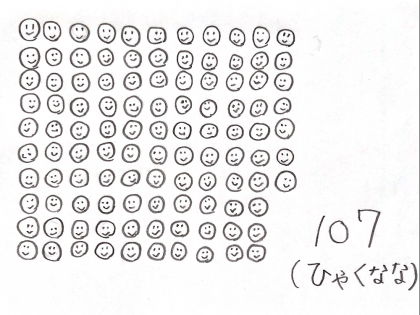 107
(ひゃくなな)